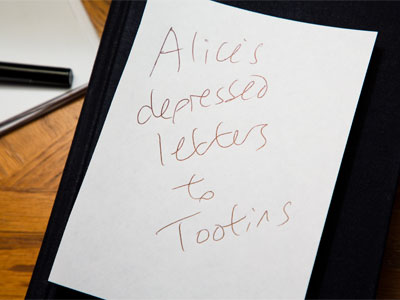 Alice's
depressed
letters
to
Tootins